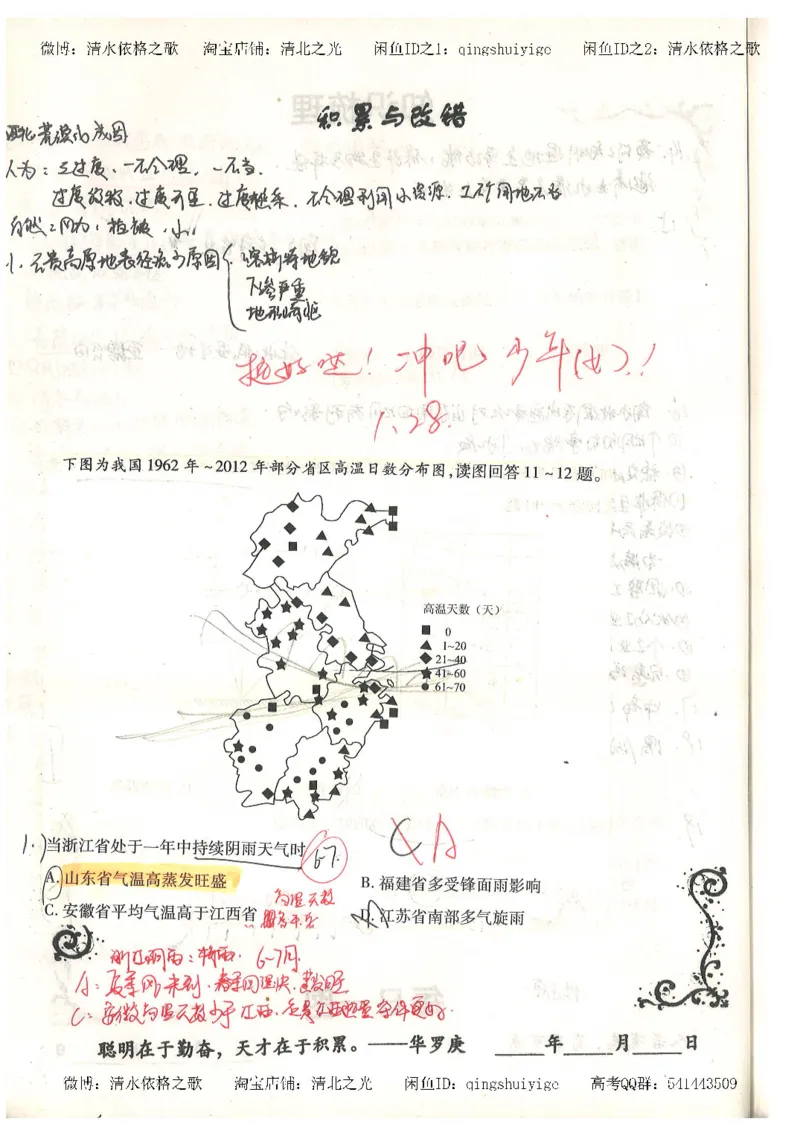 微博：清水依格之歌 淘宝店铺：清北之光 闲鱼ID之1：qingshuiyige 闲鱼ID之2：清水依格之歌
积累与改错
西北荒漠化成因
人为：三过度、一不合理，一不当.
过度放牧.过度开垦.过度樵采.不合理利用水资源.工矿用地不当
自然：风力，植被，水
云贵高原地表径流少原因
喀斯特地貌
下渗严重
地形崎岖
挺好哒！冲吧 少年(女)！
1.28.
下图为我国1962年~2012年部分省区高温日数分布图,读图回答11~12题。
高温天数（天）
0
1~20
21~40
41~60
61~70
当浙江省处于一年中持续阴雨天气时
6-7.
C A
A.山东省气温高蒸发旺盛
B.福建省多受锋面雨影响
C.安徽省平均气温高于江西省
D.江苏省南部多气旋雨
浙江阴雨：梅雨.6~7月.
A：夏季风未到.春季回温快.蒸发旺
聪明在于勤奋，天才在于积累。——华罗庚 年 月 日
微博：清水依格之歌 淘宝店铺：清北之光 闲鱼ID：qingshuiyige 高考QQ群：541443509